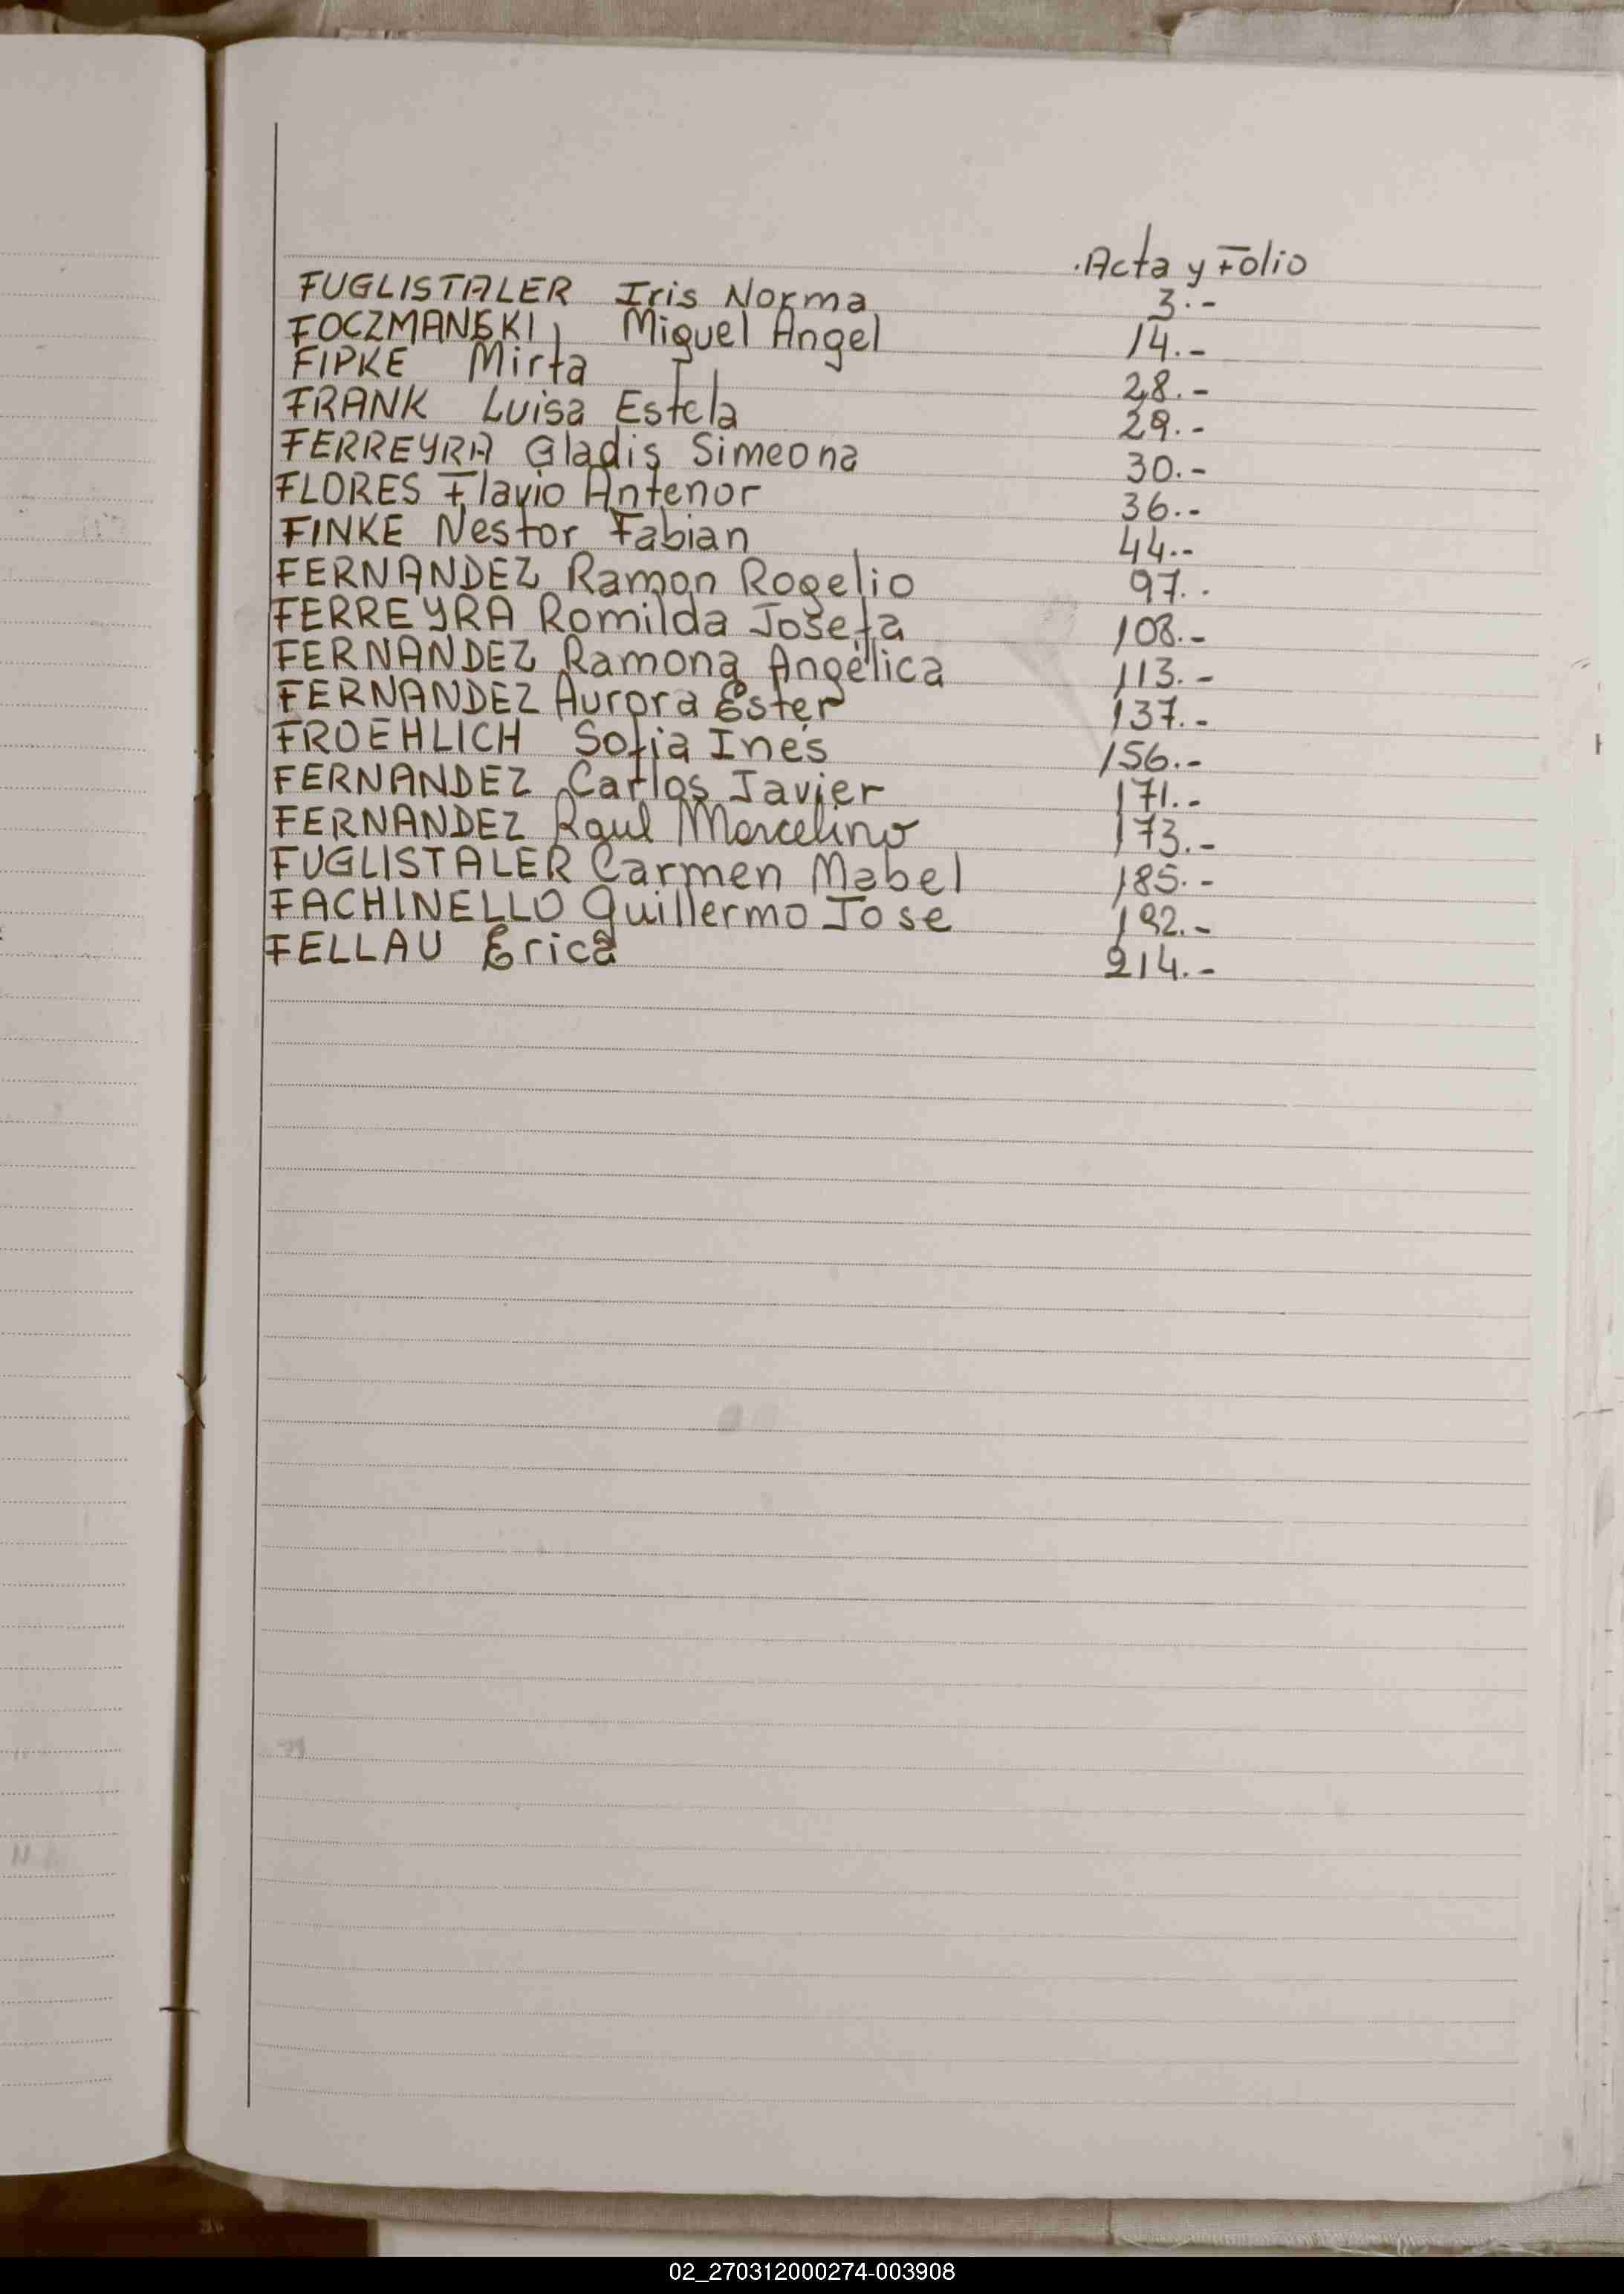 Acta y Folio
FUGLISTALER Iris Norma 3.-
FOCZMANSKI, Miguel Angel 14.-
FIPKE Mirta 28.-
FRANK Luisa Estela 29.-
FERREYRA Gladis Simeona 30.-
FLORES Flavio Antenor 36.-
FINKE Nestor Fabian 44.-
FERNANDEZ Ramon Rogelio 97..
FERREYRA Romilda Josefa 108.-
FERNANDEZ Ramona Angélica 113.-
FERNANDEZ Aurora Ester 137.-
FROEHLICH Sofia Inés 156.-
FERNANDEZ Carlos Javier 171.-
FERNANDEZ Raul Marcelino 173.-
FUGLISTALER Carmen Mabel 185.-
FACHINELLO Guillermo Jose 192.-
FELLAU Erica 214.-
02_270312000274-003908